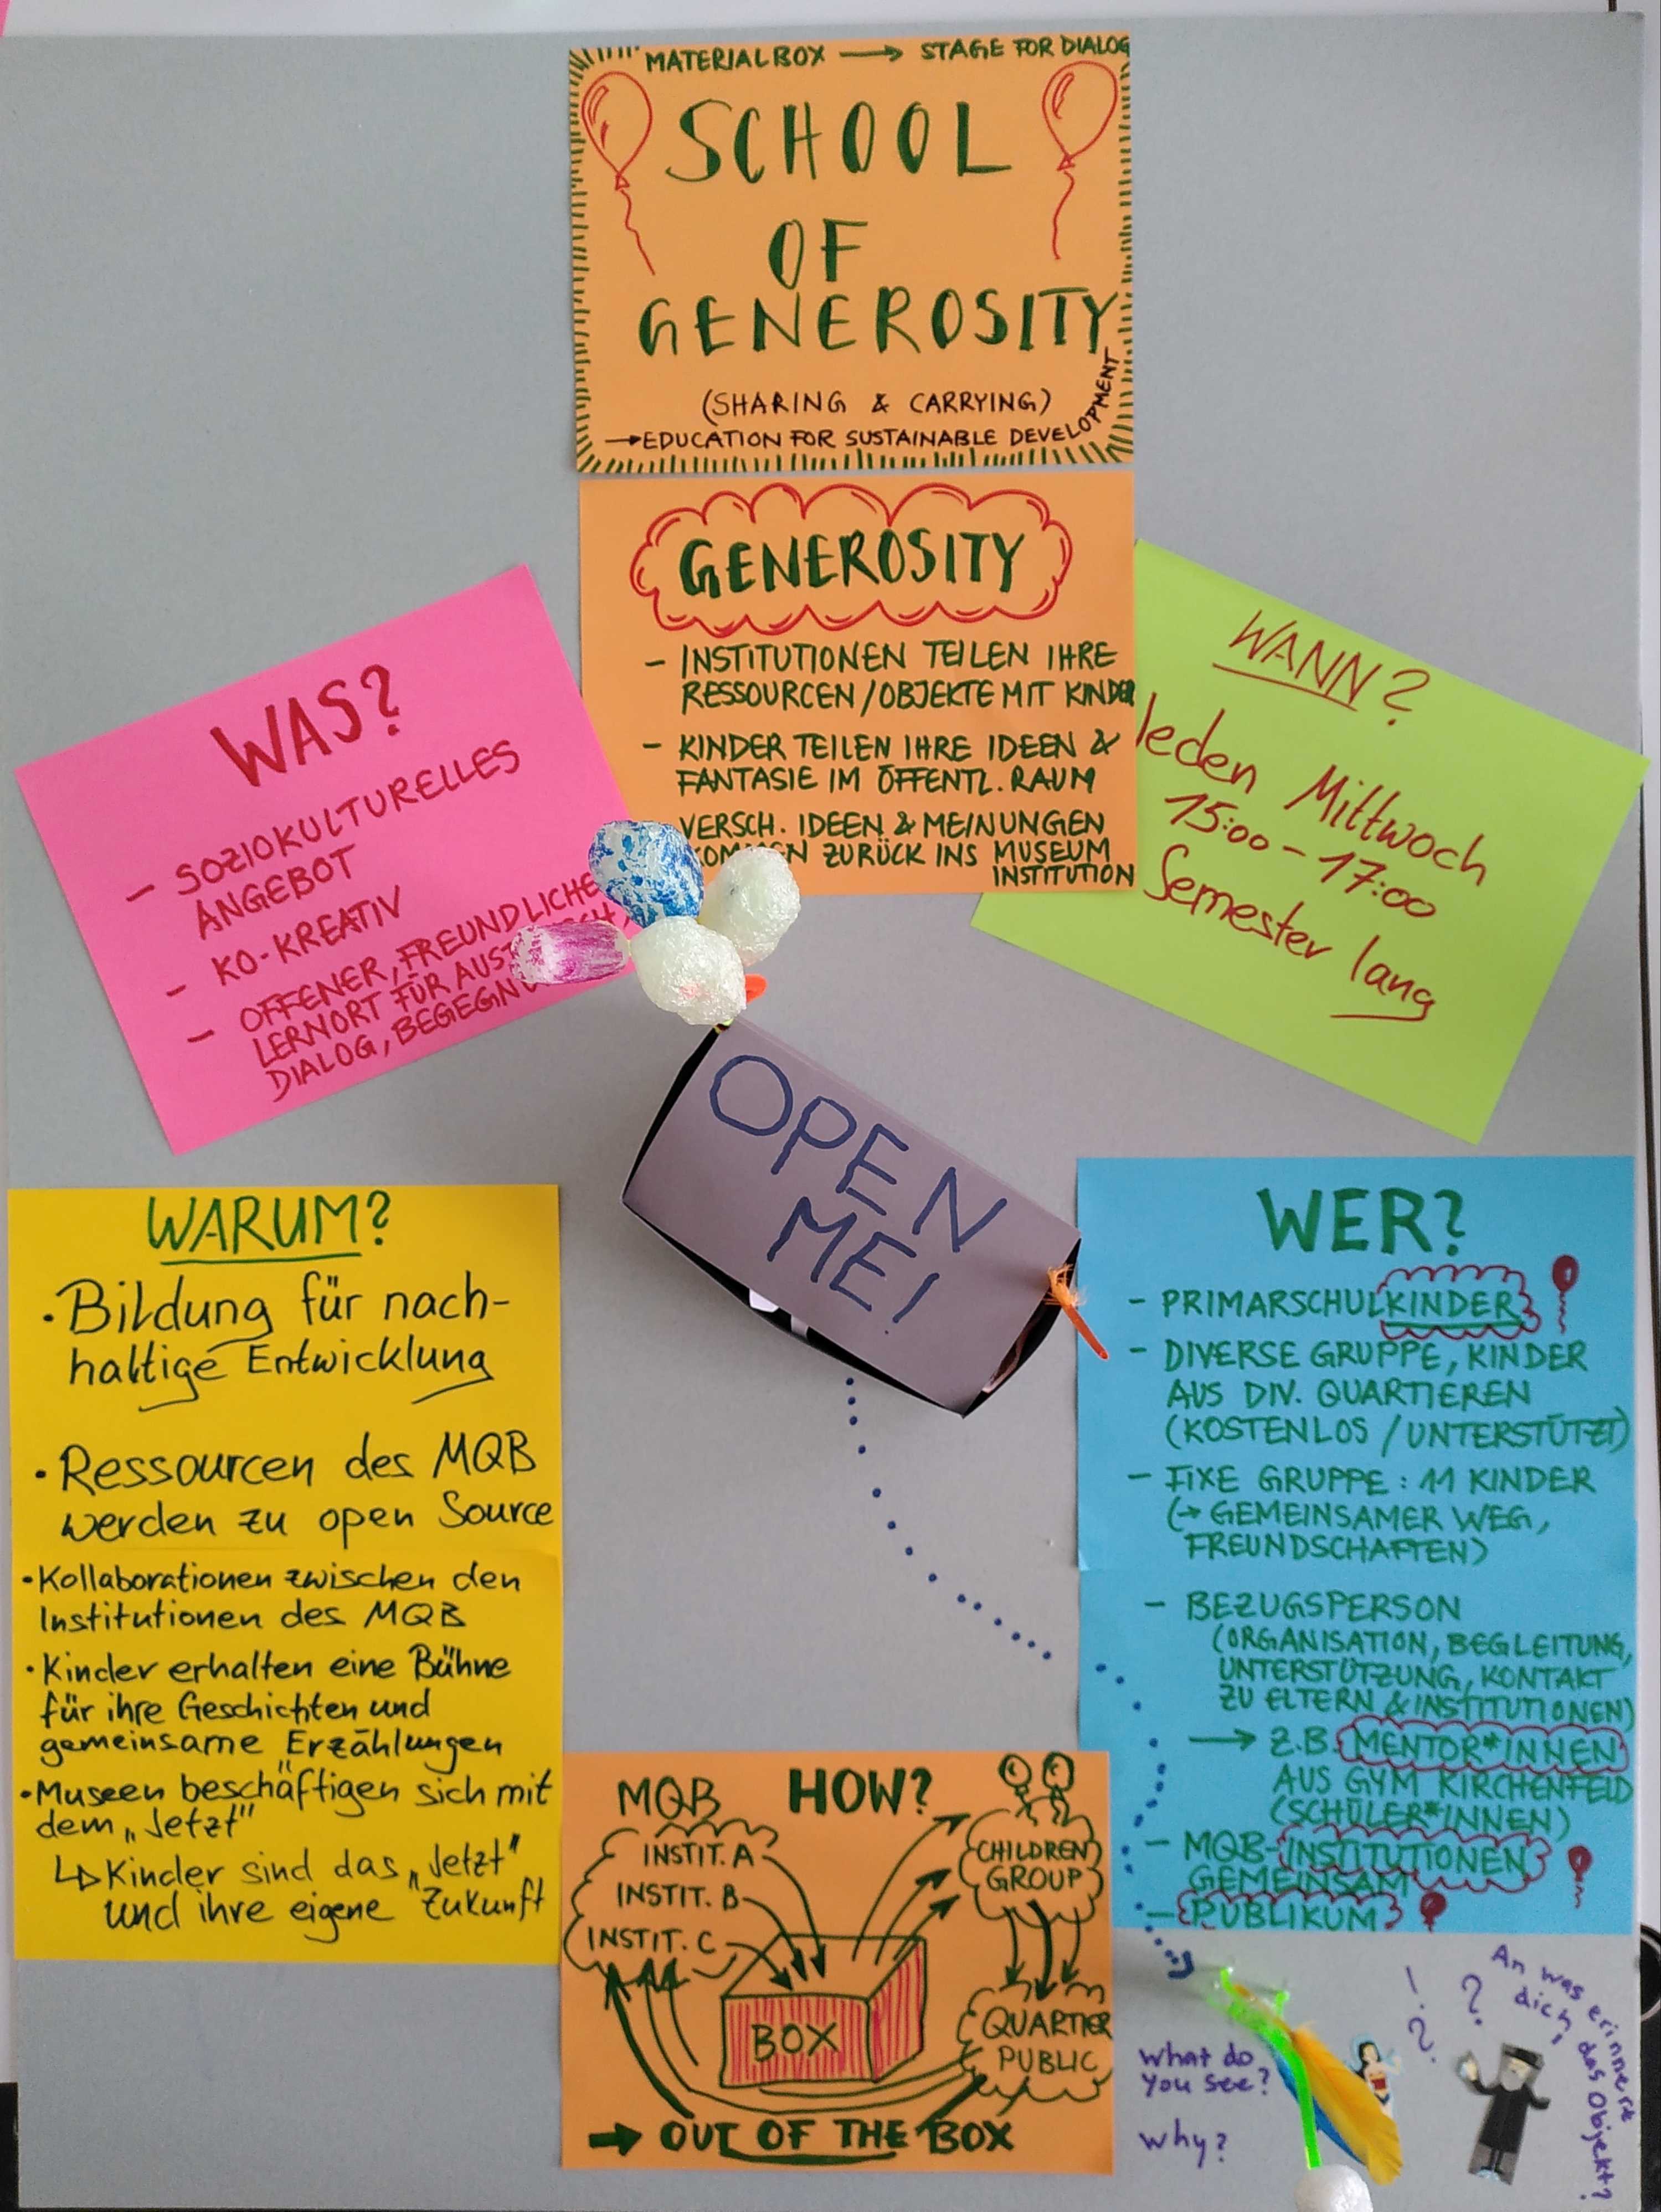 MATERIALBOX → STAGE FOR DIALOG
SCHOOL
OF
GENEROSITY
(SHARING & CARRYING)
→ EDUCATION FOR SUSTAINABLE DEVELOPMENT
GENEROSITY
- INSTITUTIONEN TEILEN IHRE
RESSOURCEN/OBJEKTE MIT KINDER
- KINDER TEILEN IHRE IDEEN &
FANTASIE IM ÖFFENTL. RAUM
VERSCH. IDEEN & MEINUNGEN
ZURÜCK INS MUSEUM
INSTITUTION
WAS?
- SOZIOKULTURELLES
ANGEBOT
- KO-KREATIV
- OFFENER, FREUNDLICHE
LERNORT FÜR
DIALOG,
WANN?
Jeden Mittwoch
15:00-17:00
Semester lang
OPEN
ME!
WARUM?
• Bildung für nach-
haltige Entwicklung
• Ressourcen des MQB
werden zu open Source
• Kollaborationen zwischen den
Institutionen des MQB
• Kinder erhalten eine Bühne
für ihre Geschichten und
gemeinsame Erzählungen
• Museen beschäftigen sich mit
dem „Jetzt"
↳ Kinder sind das „Jetzt"
und ihre eigene Zukunft
WER?
- PRIMARSCHULKINDER
- DIVERSE GRUPPE, KINDER
AUS DIV. QUARTIEREN
(KOSTENLOS / UNTERSTÜTZT)
- FIXE GRUPPE: 11 KINDER
(→ GEMEINSAMER WEG,
FREUNDSCHAFTEN)
- BEZUGSPERSON
(ORGANISATION, BEGLEITUNG,
UNTERSTÜTZUNG, KONTAKT
ZU ELTERN & INSTITUTIONEN)
→ Z.B. MENTOR*INNEN
AUS GYM KIRCHENFELD
(SCHÜLER*INNEN)
- MQB-INSTITUTIONEN
GEMEINSAM
- PUBLIKUM
MQB HOW?
INSTIT. A
INSTIT. B
INSTIT. C
BOX
CHILDREN
GROUP
QUARTIER
PUBLIC
→ OUT OF THE BOX
What do
you see?
Why?
! ?
?
An was erinnert
dich das Objekt?